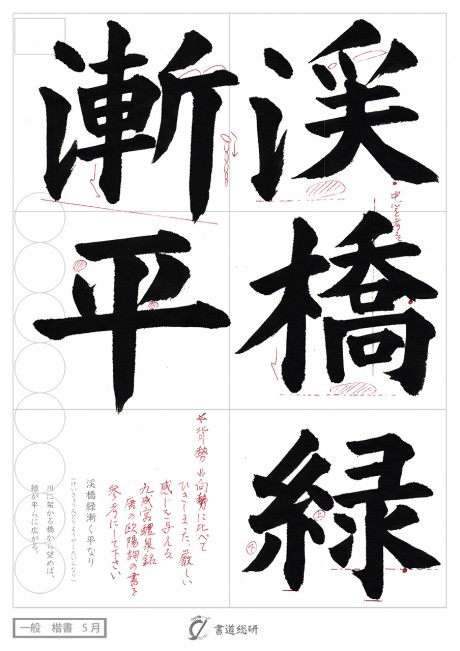 渓橋緑
漸平
中心を考えて
※背勢⇒向勢に比べて
ひきしまった、厳しい
感じを与える
九成宮醴泉銘
唐の欧陽詢の書を
参考にして下さい
渓橋緑漸く平なり
川に架かる橋から望めば、
緑が平らに広がる。
一般 楷書 5月
書道総研